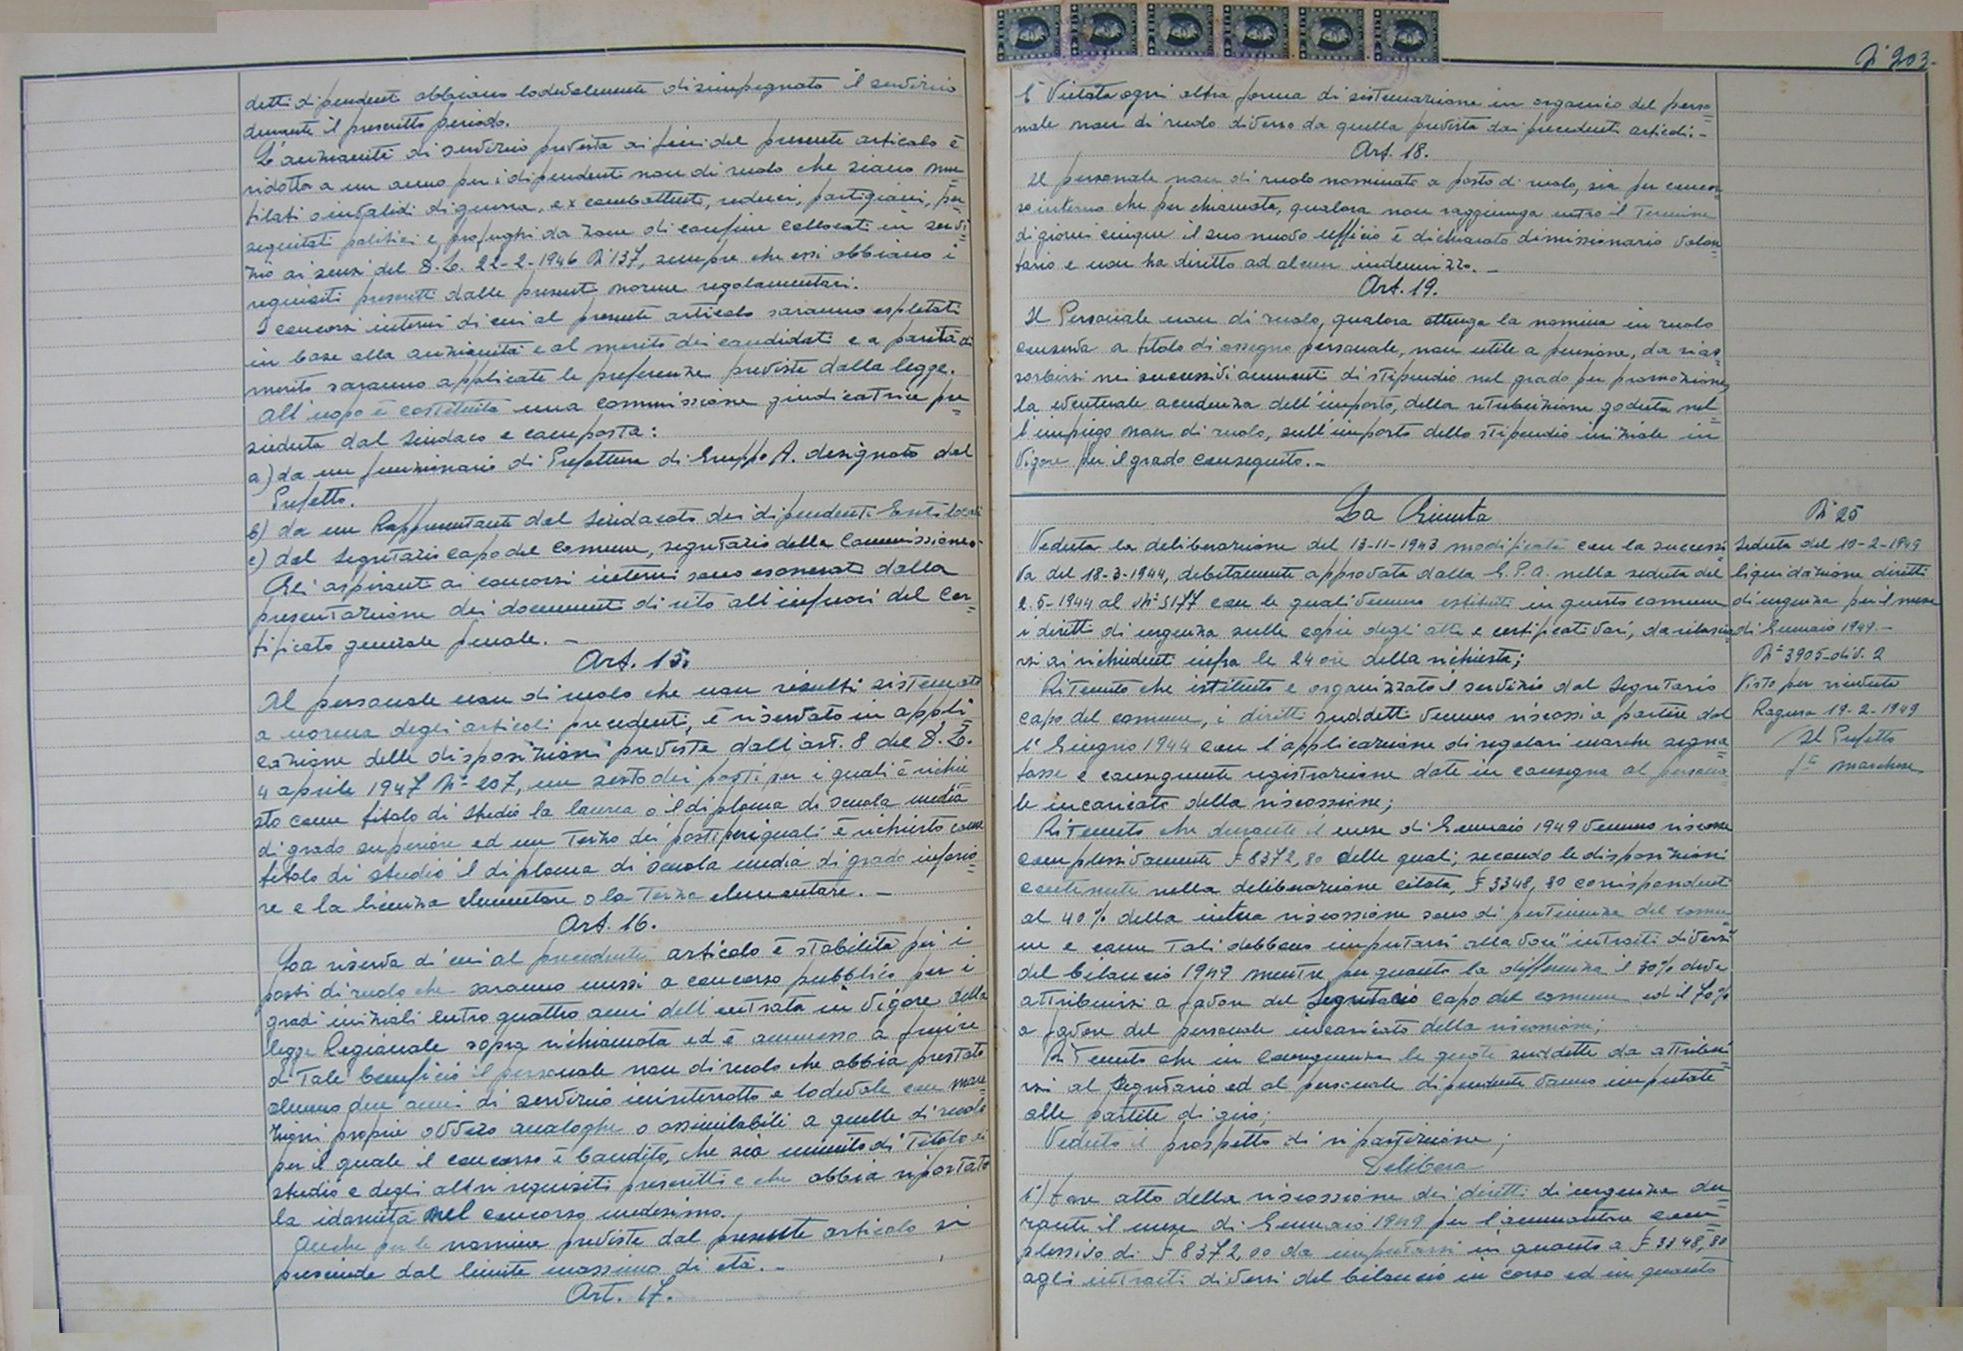 detti dipendenti abbiano lodevolmente disimpegnato il servizio
durante il prescritto periodo.
L'anzianità di servizio prevista ai fini del presente articolo è
ridotta a un anno per i dipendenti non di ruolo che siano mu=
tilati o invalidi di guerra, ex combattenti, reduci, partigiani, per=
seguitati politici e profughi da zone di confine collocati in servi=
zio ai sensi del D.L. 22-2-1946 N° 137, sempre che essi abbiano i
requisiti prescritti dalle presenti norme regolamentari.
I concorsi interni di cui al presente articolo saranno espletati
in base alla anzianità e al merito dei candidati e a parità di
merito saranno applicate le preferenze previste dalla legge.
All'uopo è costituita una commissione giudicatrice pre=
sieduta dal Sindaco e composta:
a) da un funzionario di Prefettura di Gruppo A. designato dal
Prefetto.
b) da un Rappresentante del Sindacato dei dipendenti Enti locali
c) dal Segretario capo del Comune, segretario della Commissione.
Gli aspiranti ai concorsi interni sono esonerati dalla
presentazione dei documenti di rito all'infuori del cer=
tificato generale penale. -
Art. 15.
Il personale non di ruolo che non risulti sistemato
a norma degli articoli precedenti, è riservato in appli
cazione delle disposizioni previste dall'art. 8 del D.L.
4 aprile 1947 N° 207, un sesto dei posti per i quali è richie
sto come titolo di studio la laurea o il diploma di scuola media
di grado superiore ed un terzo dei posti per i quali è richiesto come
titolo di studio il diploma di scuola media di grado inferio=
re e la licenza elementare o la terza elementare. -
Art. 16.
La riserva di cui al precedente articolo è stabilita per i
posti di ruolo che saranno messi a concorso pubblico per i
gradi iniziali entro quattro anni dell'entrata in vigore della
legge Regionale sopra richiamata ed è ammesso a fruire
di tale beneficio il personale non di ruolo che abbia prestato
almeno due anni di servizio ininterrotto e lodevole con man=
zioni proprie ovvero analoghe o assimilabili a quelle di ruolo
per il quale il concorso è bandito, che sia munito di titolo di
studio e degli altri requisiti prescritti e che abbia riportato
la idoneità nel concorso medesimo.
Anche per le nomine previste dal presente articolo si
prescinde dal limite massimo di età. -
Art. 17.
N° 203.
È vietata ogni altra forma di sistemazione in organico del perso=
nale non di ruolo diverso da quella prevista dai precedenti articoli. -
Art. 18.
Il personale non di ruolo nominato a posto di ruolo, sia per concor=
so interno che per chiamata, qualora non raggiunga entro il termine
di giorni cinque il suo nuovo ufficio è dichiarato dimissionario volon=
tario e non ha diritto ad alcun indennizzo. -
Art. 19.
Il Personale non di ruolo, qualora ottenga la nomina in ruolo
conserva a titolo di assegno personale, non utile a pensione, da rias=
sorbirsi nei successivi aumenti di stipendio nel grado per promozione,
la eventuale accedenza dell'importo, della retribuzione goduta nel=
l'impiego non di ruolo, sull'importo dello stipendio iniziale in
vigore per il grado conseguito. -
La Giunta
Veduta la deliberazione del 13-11-1943 modificata con la successi
va del 18-3-1944, debitamente approvata dalla G.P.A. nella seduta del
2.5-1944 al N° 5177 con le quali vennero istituiti in questo comune
i diritti di urgenza sulle copie degli atti e certificati vari, da rilascia=
rsi ai richiedenti infra le 24 ore della richiesta;
Ritenuto che istituito e organizzato il servizio dal Segretario
capo del comune, i diritti suddetti vennero riscossi a partire dal
1° Giugno 1944 con l'applicazione di regolari marche segna
tasse e conseguente registrazione date in consegna al persona
le incaricato della riscossione;
Ritenuto che durante il mese di Gennaio 1949 vennero riscosse
complessivamente £ 8372,80 delle quali; secondo le disposizioni
contenute nella deliberazione citata, £ 3348,80 corrispondenti
al 40% della intera riscossione sono di pertinenza del comu
ne e come tali debbono imputarsi alla voce "introiti diversi
del bilancio 1949 mentre per quanto la differenza il 30% deve
attribuirsi a favore del Segretario capo del comune ed il 70%
a favore del personale incaricato della riscossione;
Ritenuto che in conseguenza le quote suddette da attribui
rsi al Segretario ed al personale dipendente vanno imputate
alle partite di giro;
Veduto il prospetto di ripartizione;
Delibera
1°) Fare atto della riscossione dei diritti di urgenza du=
rante il mese di Gennaio 1949 per l'ammontare com=
plessivo di £ 8372,00 da imputarsi in quanto a £ 3348,80
agli introiti diversi del bilancio in corso ed in quanto
N° 25
Seduta del 10-2-1949
liquidazione diritti
di urgenza per il mese
di Gennaio 1949. -
N° 3905 div. 2
Visto per ricevuta
Ragusa 19-2-1949
Il Prefetto
f° Marchese